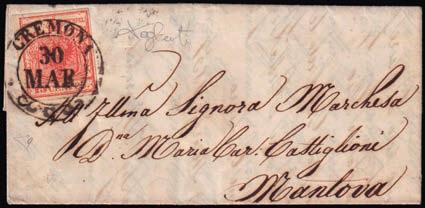 CREMONA
30
MAR
All'Illma Signora Marchesa
Dna Maria Car: Castiglioni
Mantova